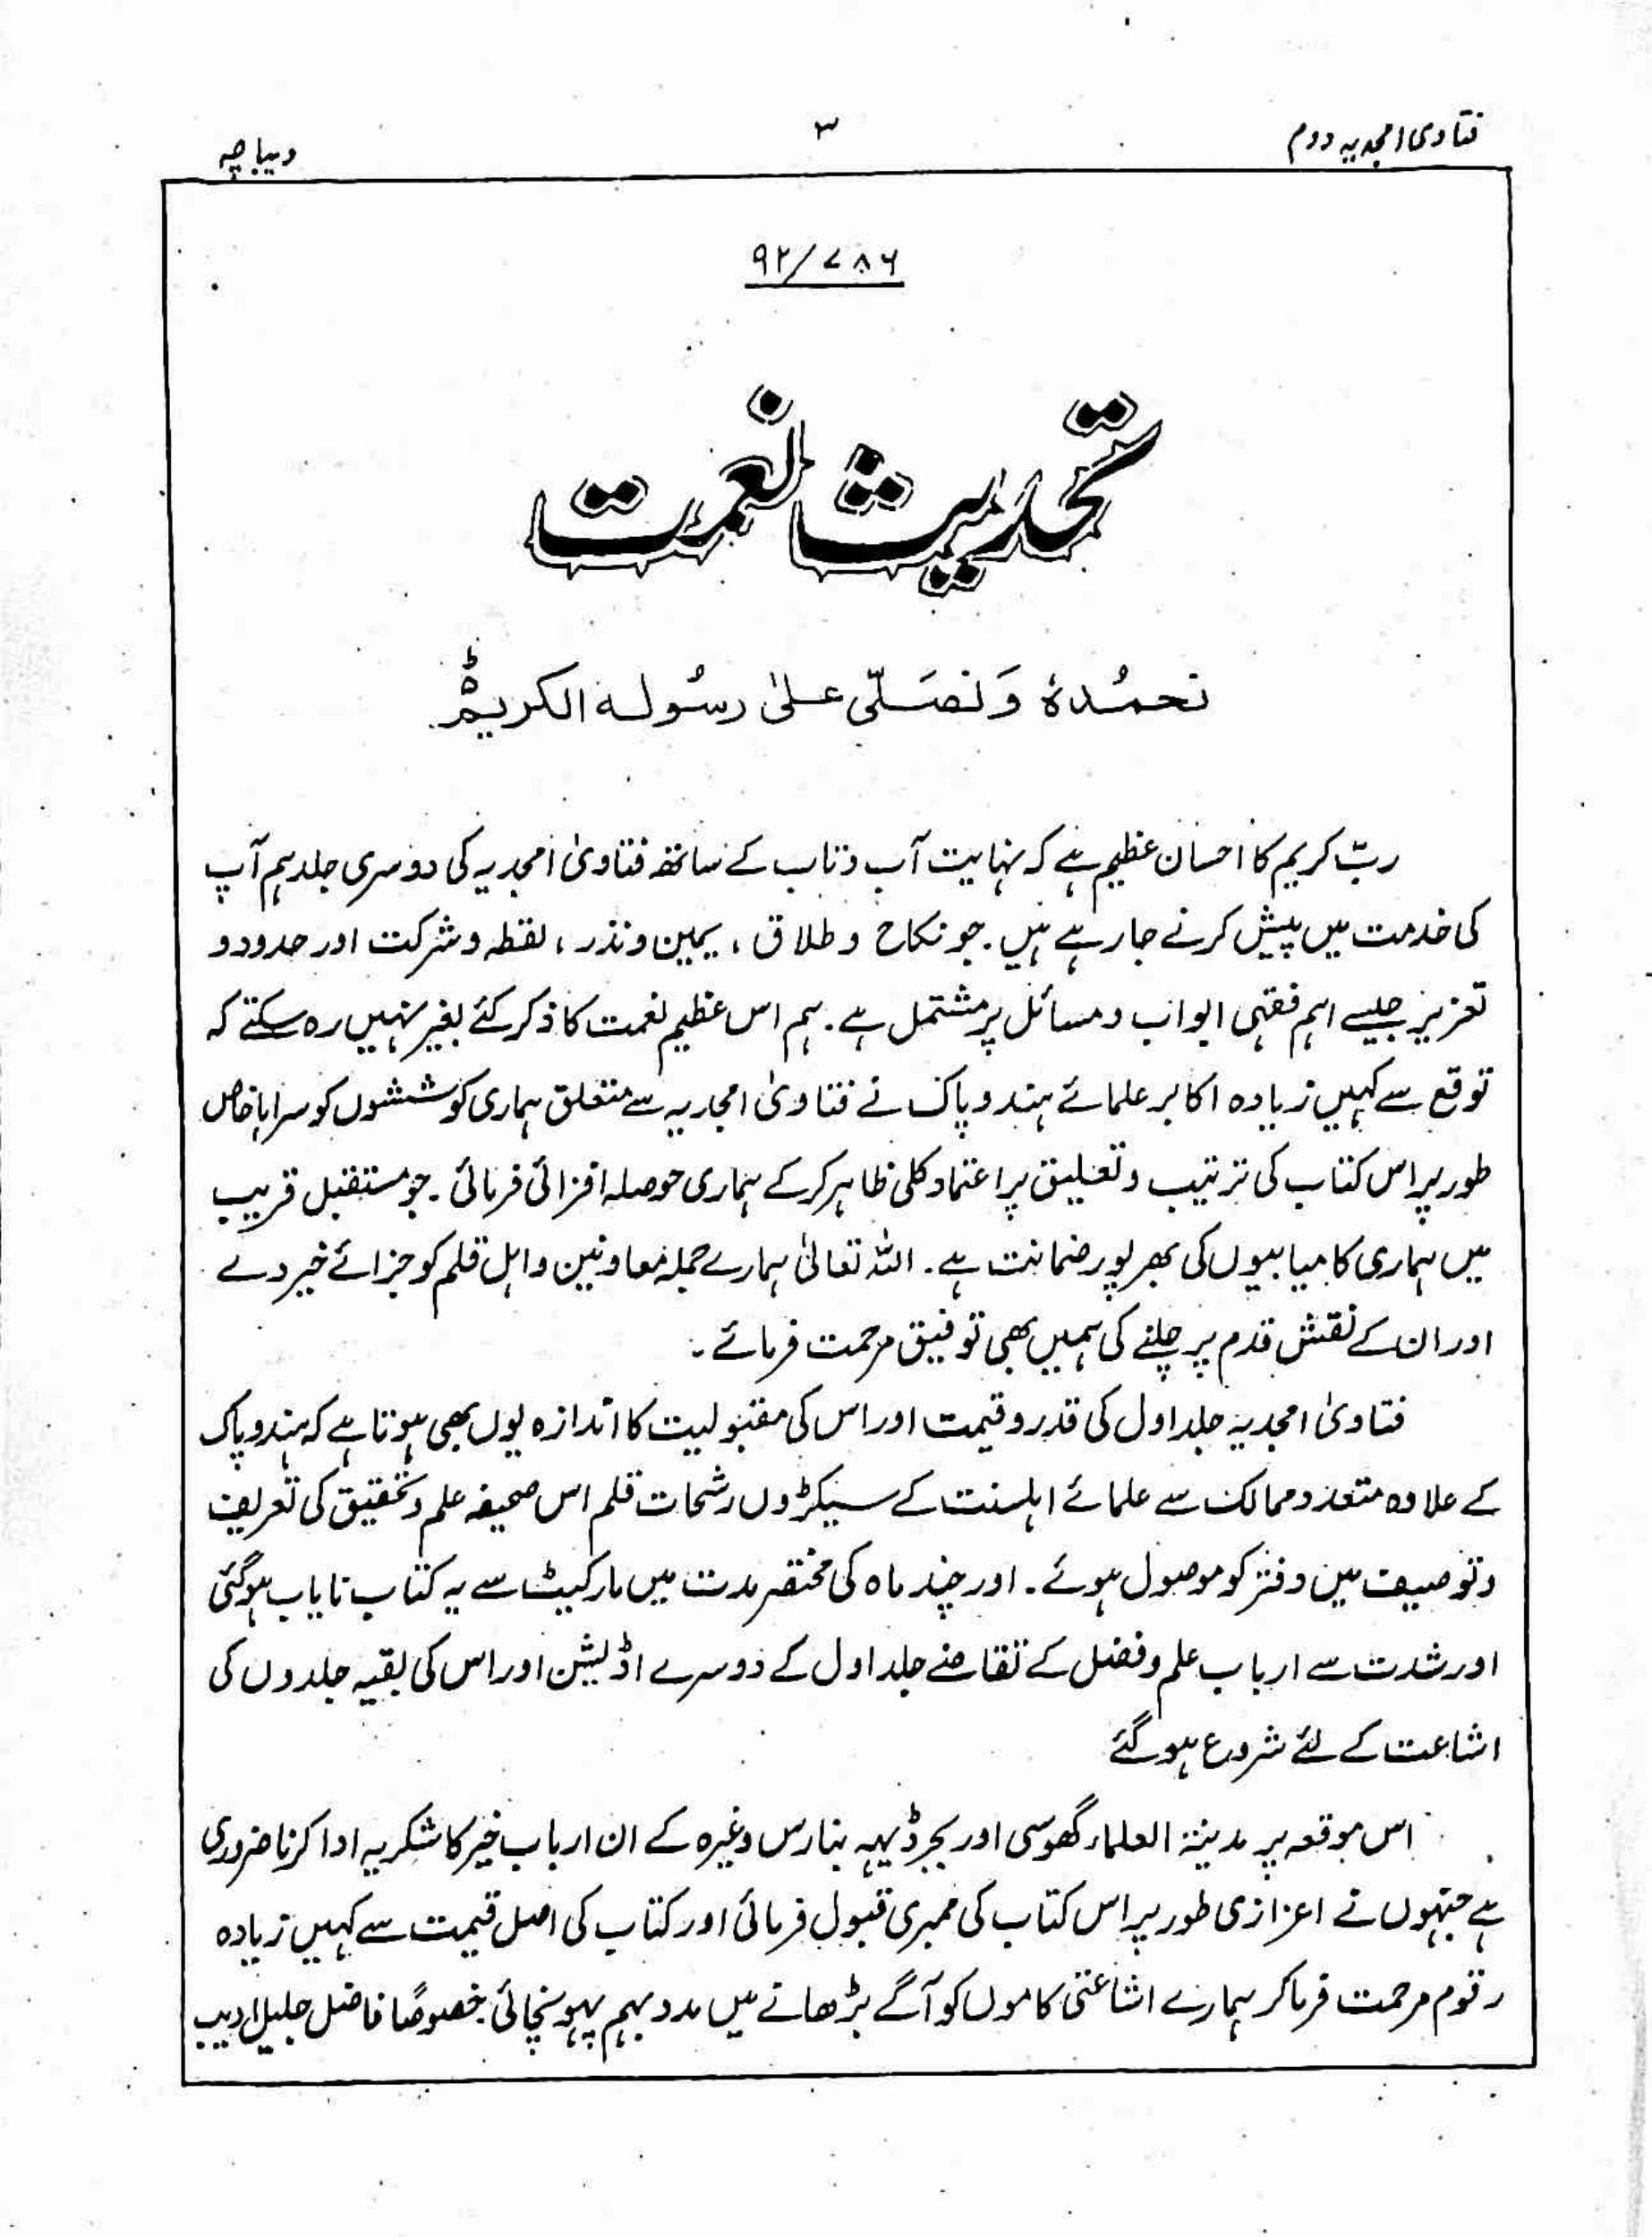 فتاوی امجدیہ دوم
۳
دیباچہ
۹۲/۷۸۶
تحدیث نعمت
نحمدہٗ وَ نصَلّی علیٰ رسُولہ الکریمؐ
ربّ کریم کا احسان عظیم ہے کہ نہایت آب و تاب کے ساتھ فتاویٰ امجدیہ کی دوسری جلد ہم آپ
کی خدمت میں پیش کرنے جارہے ہیں۔ جو نکاح و طلاق ، یمین و نذر ، لقطہ و شرکت اور حدود و
تعزیر جیسے اہم فقہی ابواب و مسائل پر مشتمل ہے۔ ہم اس عظیم نعمت کا ذکر کئے بغیر نہیں رہ سکتے کہ
توقع سے کہیں زیادہ اکابر علمائے ہند و پاک نے فتاویٰ امجدیہ سے متعلق ہماری کوششوں کو سراہا خاص
طور پر اس کتاب کی ترتیب و تعلیق پر اعتماد کلی ظاہر کر کے ہماری حوصلہ افزائی فرمائی۔ جو مستقبل قریب
میں ہماری کامیابیوں کی بھر پور ضمانت ہے۔ اللہ تعالیٰ ہمارے جملہ معاونین و اہل قلم کو جزائے خیر دے
اور ان کے نقش قدم پر چلنے کی ہمیں بھی توفیق مرحمت فرمائے۔
فتاویٰ امجدیہ جلد اول کی قدر و قیمت اور اس کی مقبولیت کا اندازہ یوں بھی ہوتا ہے کہ ہند و پاک
کے علاوہ متعدد ممالک سے علمائے اہلسنت کے سیکڑوں رشحات قلم اس صحیفہ علم و تحقیق کی تعریف
و توصیف میں دفتر کو موصول ہوئے۔ اور چند ماہ کی مختصر مدت میں مارکیٹ سے یہ کتاب نایاب ہوگئی
اور شدت سے ارباب علم و فضل کے تقاضے جلد اول کے دوسرے اڈلیشن اور اس کی بقیہ جلدوں کی
اشاعت کے لئے شروع ہو گئے
اس موقعہ پر مدینۃ العلماء گھوسی اور بجرڈیہہ بنارس وغیرہ کے ان ارباب خیر کا شکریہ ادا کرنا ضروری
ہے جنہوں نے اعزازی طور پر اس کتاب کی ممبری قبول فرمائی اور کتاب کی اصل قیمت سے کہیں زیادہ
رقوم مرحمت فرما کر ہمارے اشاعتی کاموں کو آگے بڑھانے میں مدد بہم پہونچائی خصوصًا فاضل جلیل ادیب